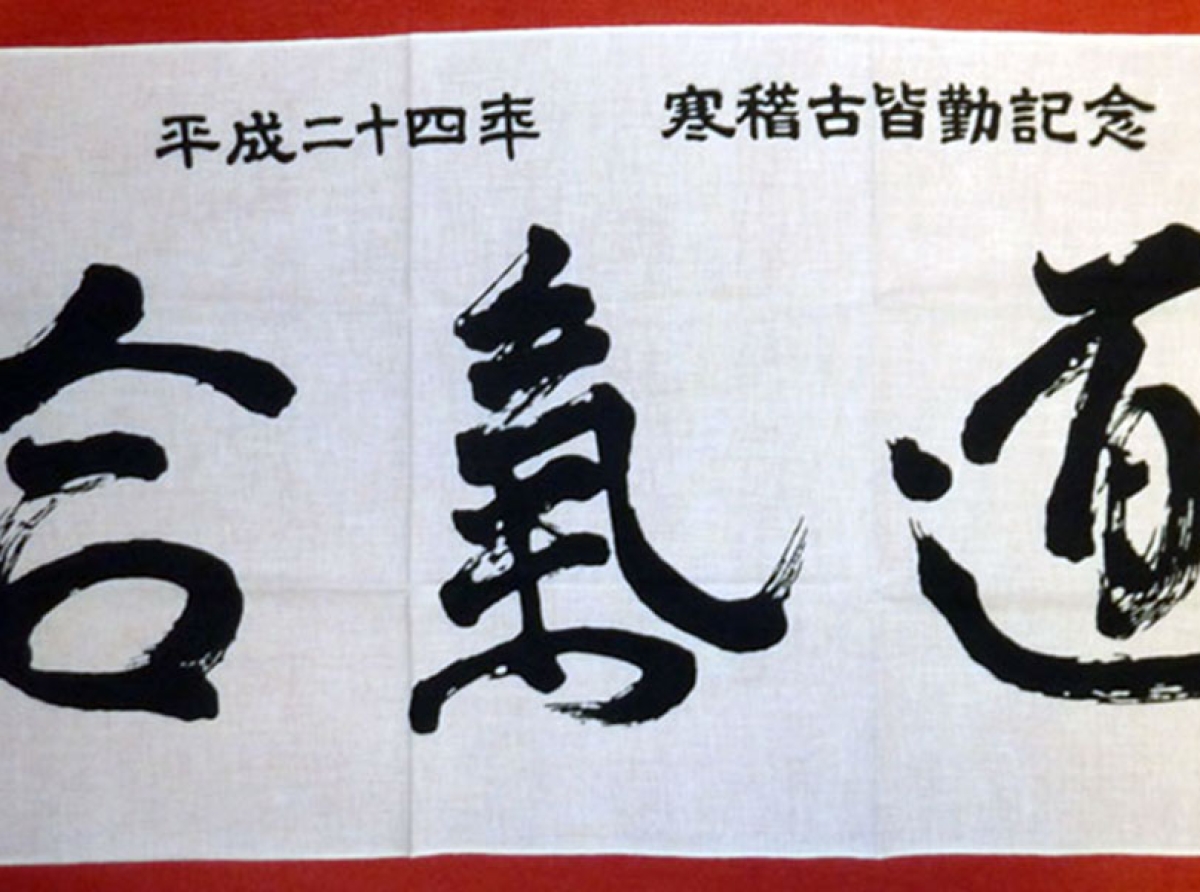 平成二十四年 寒稽古皆勤記念
合氣道